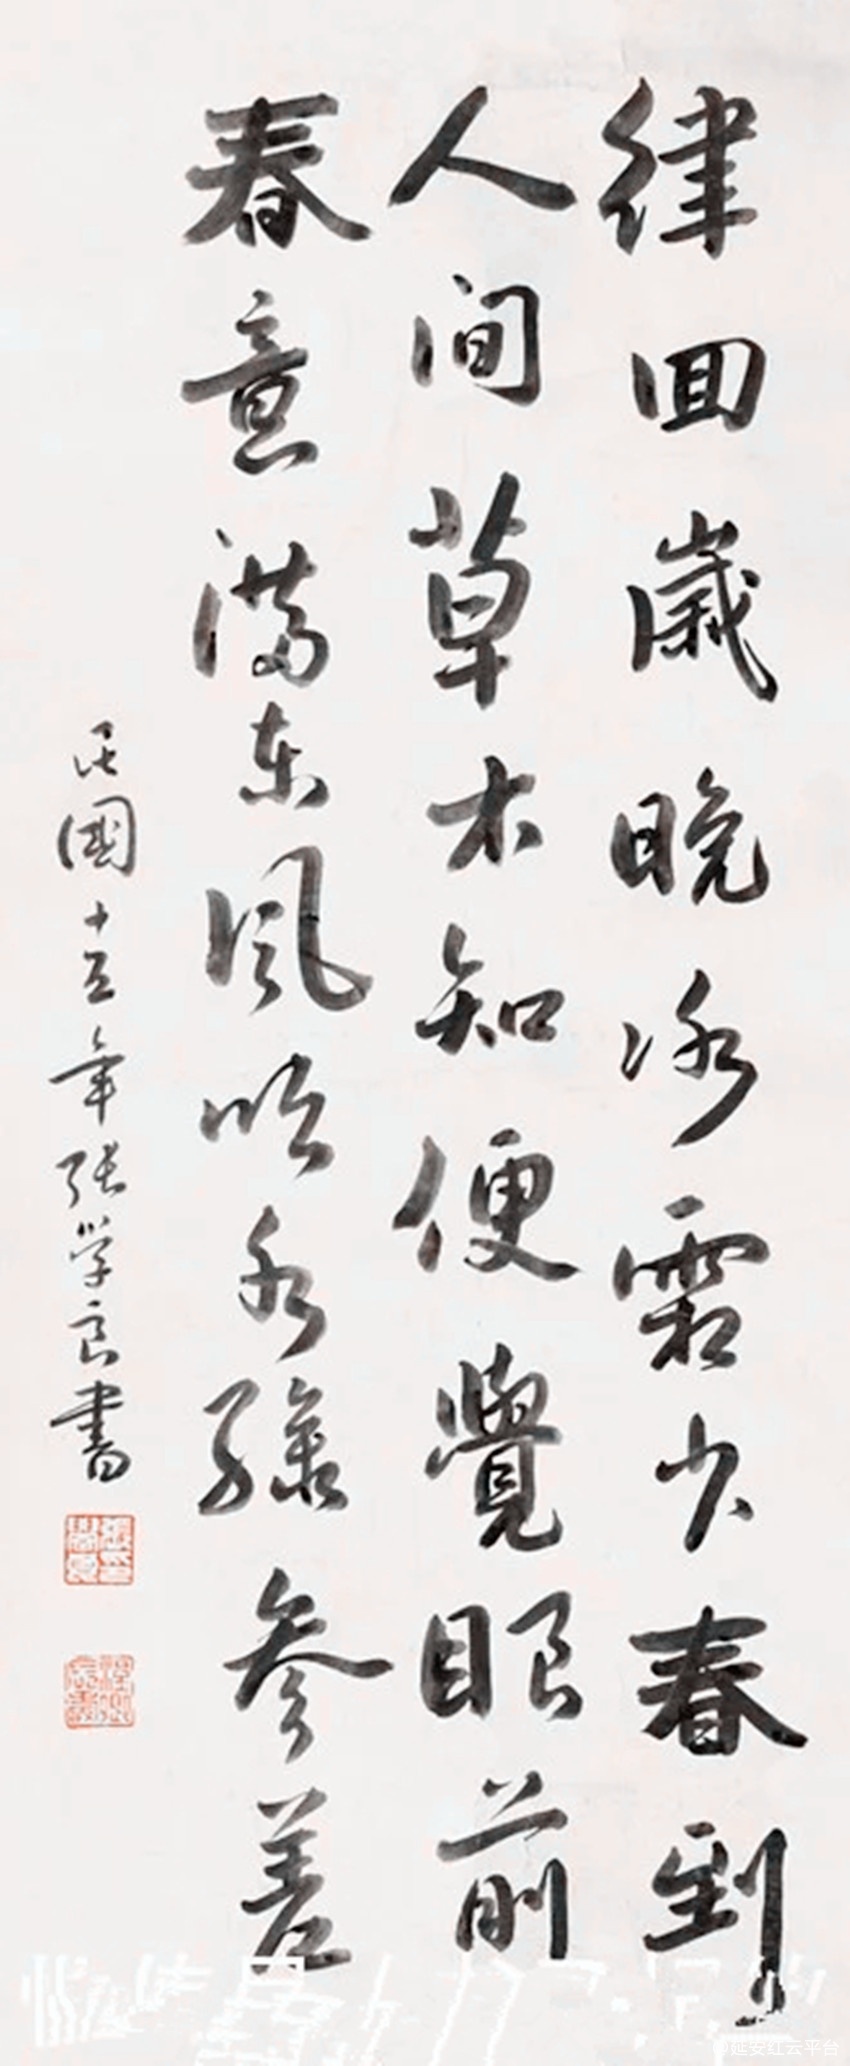 律回歲晚冰霜少春到
人间草木知便覺眼前
春意滿东風吹水綠參差
民國十五年張学良書
@延安红云平台